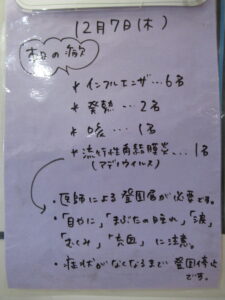 12月7日(木)
本日の欠
* インフルエンザ...6名
* 発熱...2名
* 咳...1名
* 流行性角結膜炎...1名
(アデノウイルス)
・医師による登園届が必要です。
・「目やに」「まぶたの腫れ」「涙」
「むくみ」「充血」に注意。
・症状がなくなるまで登園停止
です。